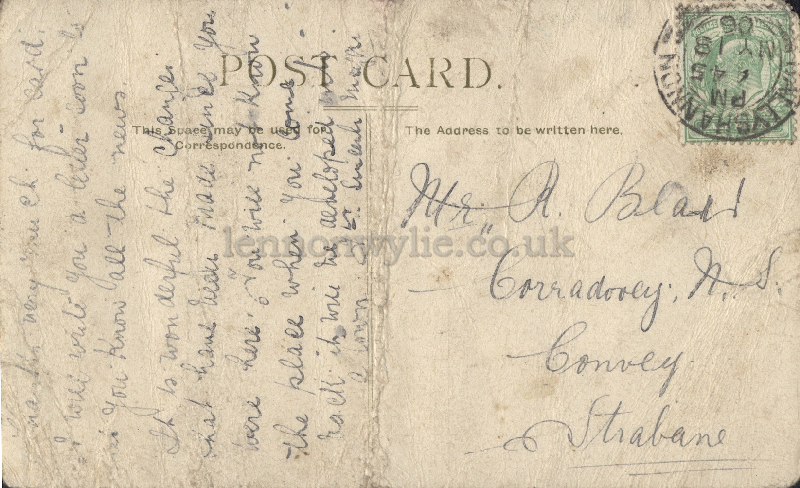 POST CARD.
This Space may be used for
Correspondence.
The Address to be written here.
very much for card.
I will write you a letter soon to
you know all the news.
It is wonderful the changes
that have been made since you
were here. You will not know
the place when you come
back it will be developed into
a town.
Mr. R. Blair
Corradooey, N. S.
Convoy
Strabane
BALLYSHANNON
4 45 PM
MY 19
06
lennonwylie.co.uk